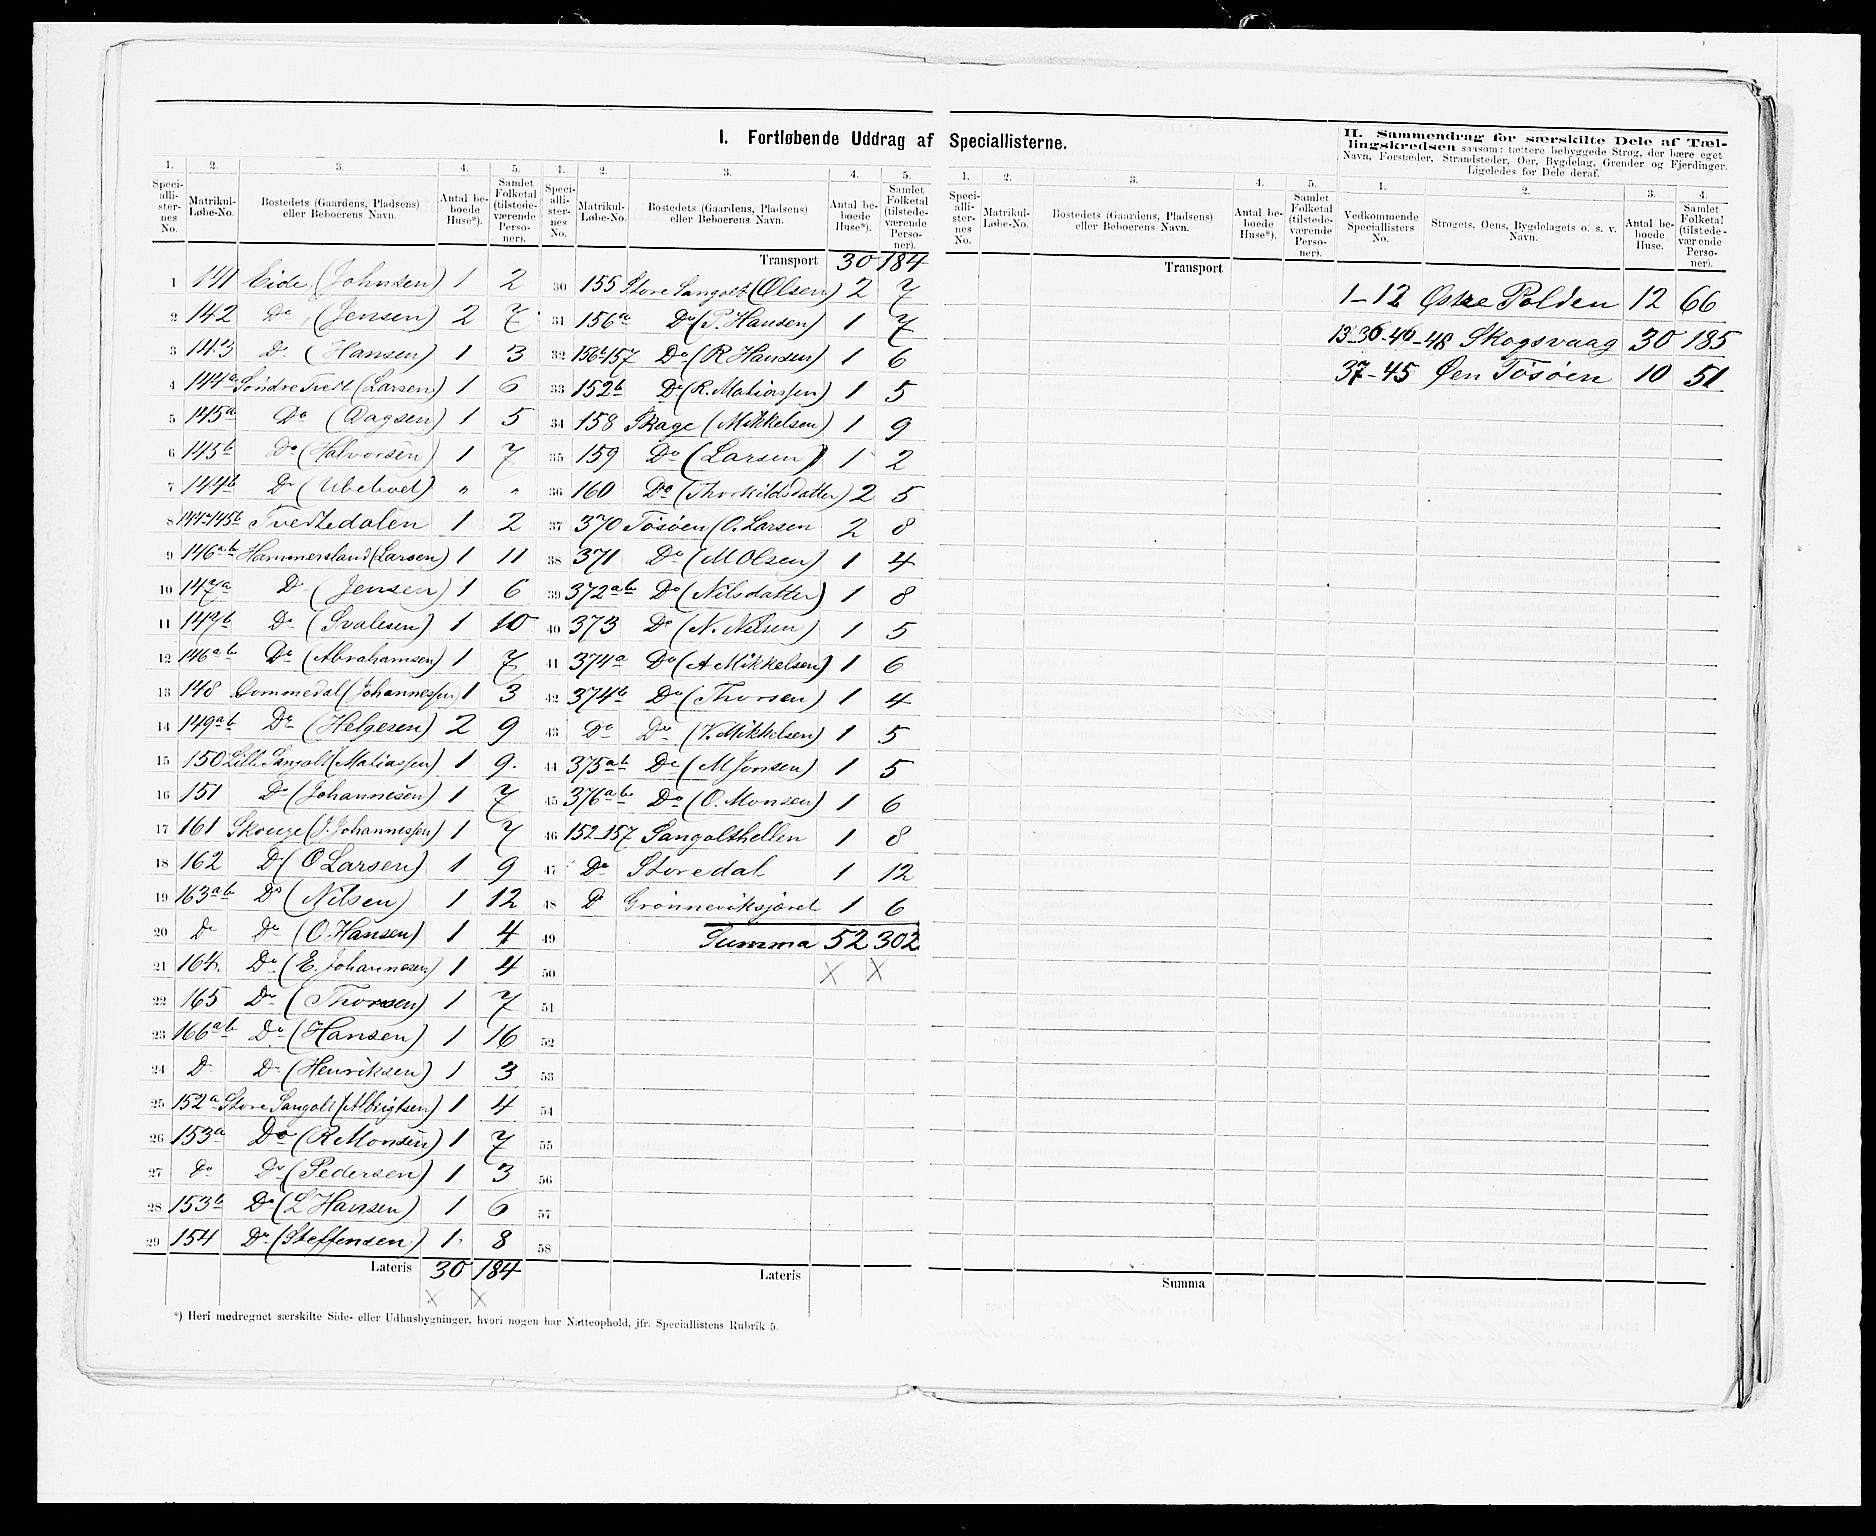 I. Fortløbende Uddrag af Speciallisterne.
1. 2. 3. 4. 5. 1. 2. 3. 4. 5.
Speciallisternes No. Matrikul-Løbe-No. Bostedets (Gaardens, Pladsens) eller Beboerens Navn. Antal beboede Huse*). Samlet Folketal (tilstedeværende Personer). Speciallisternes No. Matrikul-Løbe-No. Bostedets (Gaardens, Pladsens) eller Beboerens Navn. Antal beboede Huse*). Samlet Folketal (tilstedeværende Personer).
1 141 Eide (Johnsen) 1 2
2 142 Do (Jensen) 2 7
3 143 Do (Hansen) 1 3
4 144a Söndre Tvedt (Larsen) 1 6
5 145a Do (Dagsen) 1 5
6 145b Do (Halvorsen) 1 7
7 144b Do (Ubeboet) " "
8 144a-145b Tvedtedalen 1 2
9 146ab Hammersland (Larsen) 1 11
10 147a Do (Jensen) 1 6
11 147b Do (Svalesen) 1 10
12 146ab Do (Abrahamsen) 1 7
13 148 Gommedal (Johannessen) 1 3
14 149ab Do (Helgesen) 2 9
15 150 Lille Sangolt (Matiassen) 1 9
16 151 Do (Johannesen) 1 7
17 161 Skouge (J. Johannessen) 1 7
18 162 Do (O Larsen) 1 9
19 163ab Do (Nilsen) 1 12
20 Do Do (O Hansen) 1 4
21 164 Do (E. Johannesen) 1 4
22 165 Do (Thorsen) 1 7
23 166ab Do (Hansen) 1 16
24 Do Do (Henriksen) 1 3
25 152a Store Sangolt (Albrigtsen) 1 4
26 153a Do (R Monsen) 1 7
27 Do Do (Pedersen) 1 3
28 153b Do (L Hansen) 1 6
29 154 Do (Steffensen) 1 8
Lateris 30 184
X X
Transport 30 184
30 155 Store Sangolt (Olsen) 2 7
31 156a Do (P. Hansen) 1 7
32 156b-157 Do (R Hansen) 1 6
33 152b Do (R. Matiassen) 1 5
34 158 Skage (Mikkelsen) 1 9
35 159 Do (Larsen) 1 2
36 160 Do (Thorkildsdatter) 2 5
37 370 Tösöen (O. Larsen 2 8
38 371 Do (M Olsen) 1 4
39 372ab Do (Nilsdatter) 1 8
40 373 Do (N. Nilsen) 1 5
41 374a Do (A Mikkelsen) 1 6
42 374b Do (Thorsen) 1 4
43 Do Do (V. Mikkelsen) 1 5
44 375ab Do (M Jonsen) 1 5
45 376ab Do (O. Monsen) 1 6
46 152-157 Sangolthellen 1 8
47 Do Storedal 1 12
48 Do Grönneviksjöret 1 6
49 Summa 52 302
50 X X
51
52
53
54
55
56
57
58
Lateris
*) Heri medregnet særskilte Side- eller Udhusbygninger, hvori nogen har Natteophold, jfr. Speciallistens Rubrik 5.
1. 2. 3. 4. 5.
Speciallisternes No. Matrikul-Løbe-No. Bostedets (Gaardens, Pladsens) eller Beboerens Navn. Antal beboede Huse*). Samlet Folketal (tilstedeværende Personer).
Transport
Summa
II. Sammendrag for særskilte Dele af Tællingskredsen saasom: tættere bebyggede Strøg, der bære eget
Navn, Forstæder, Strandsteder, Øer, Bygdelag, Grender og Fjerdinger.
Ligeledes for Dele deraf.
1. 2. 3. 4.
Vedkommende Speciallisters No. Strøgets, Øens, Bygdelagets o. s. v. Navn. Antal beboede Huse. Samlet Folketal (tilstedeværende Personer).
1-12 Østre Polden 12 66
13-36-46-48 Skogsvaag 30 185
37-45 Øen Tösöen 10 51